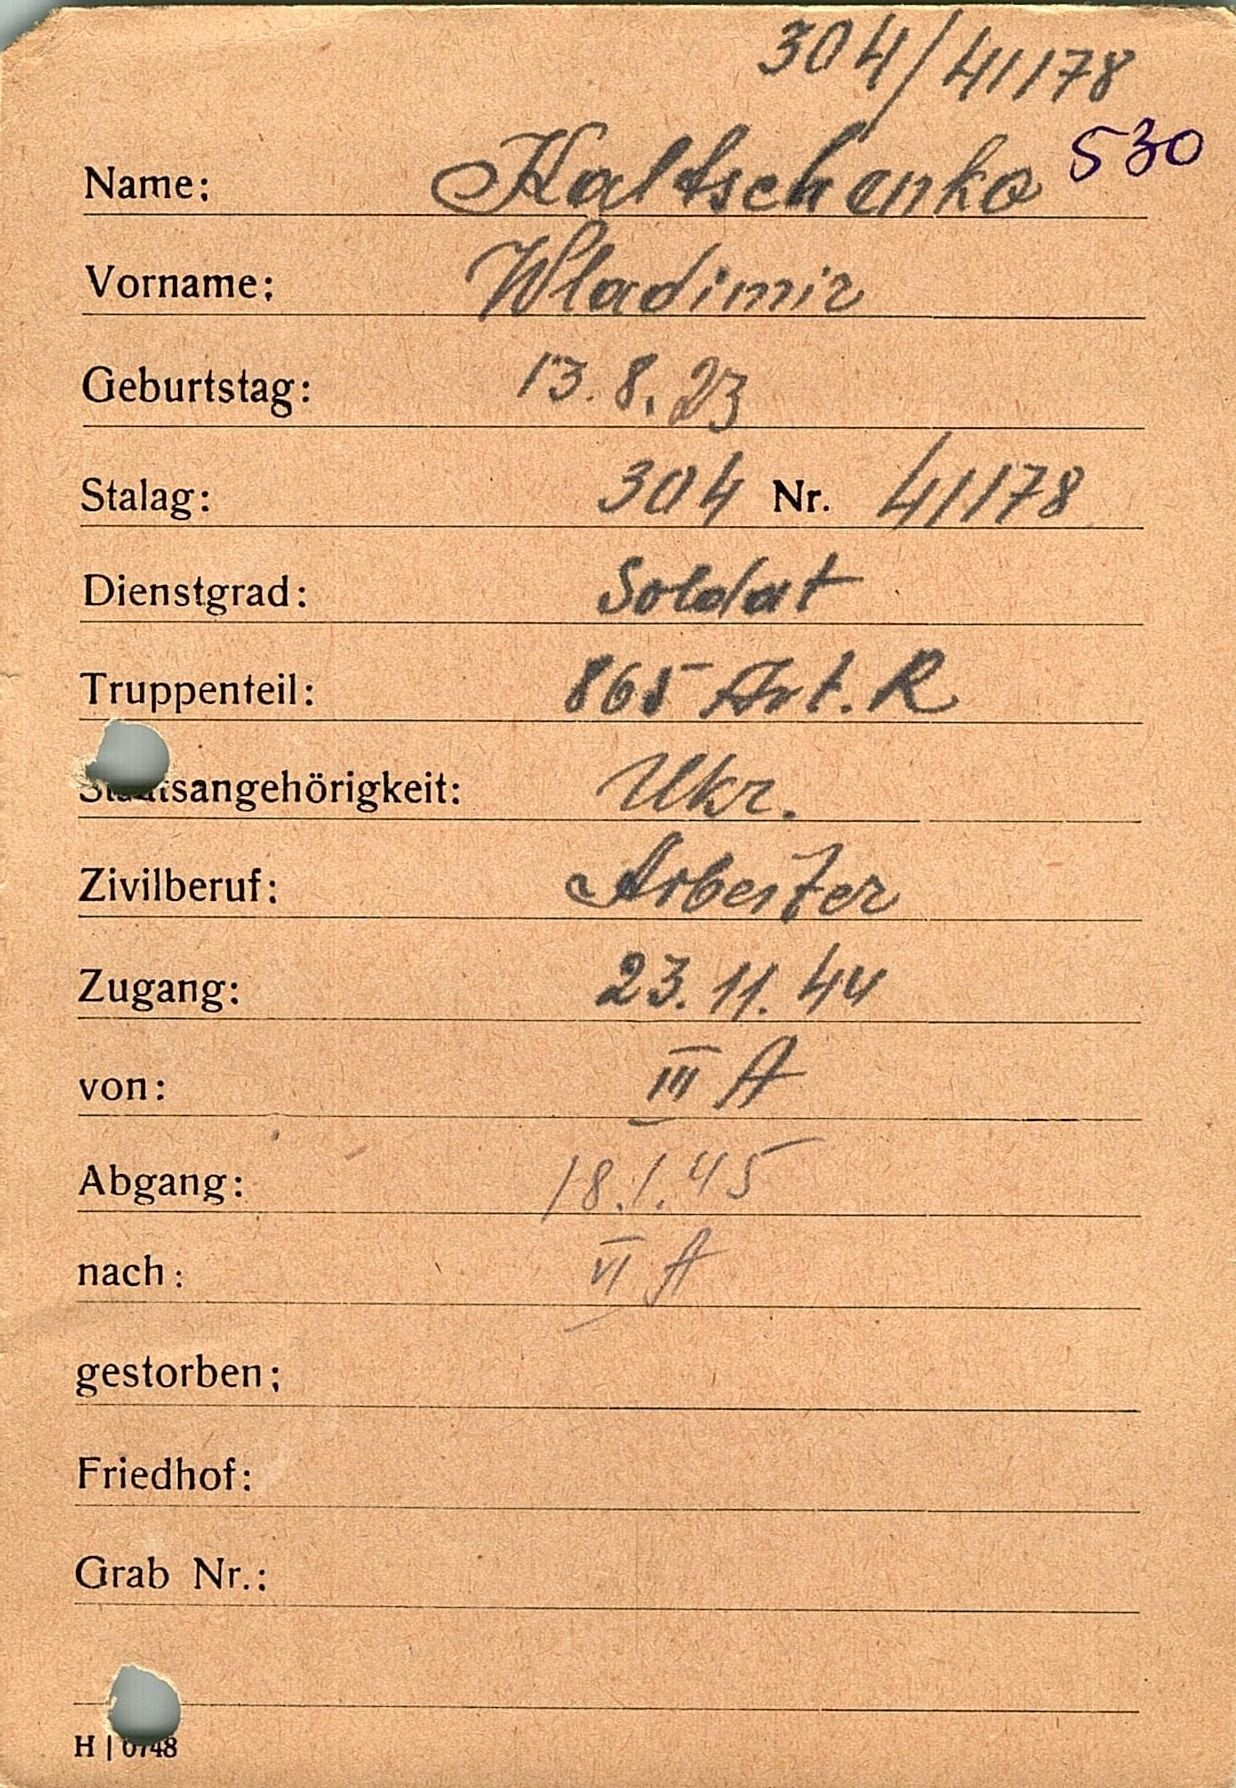 304/41178
530
Name: Kaltschenko
Vorname: Wladimir
Geburtstag: 13.8.23
Stalag: 304 Nr. 41178
Dienstgrad: Soldat
Truppenteil: 865 Art. R
Staatsangehörigkeit: Ukr.
Zivilberuf: Arbeiter
Zugang: 23.11.44
von: III A
Abgang: 18.1.45
nach: VI A
gestorben:
Friedhof:
Grab Nr.:
H | 0748